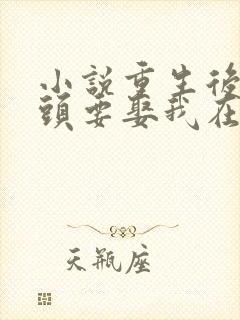 小說重生後
頭要娶我在
天瓶座